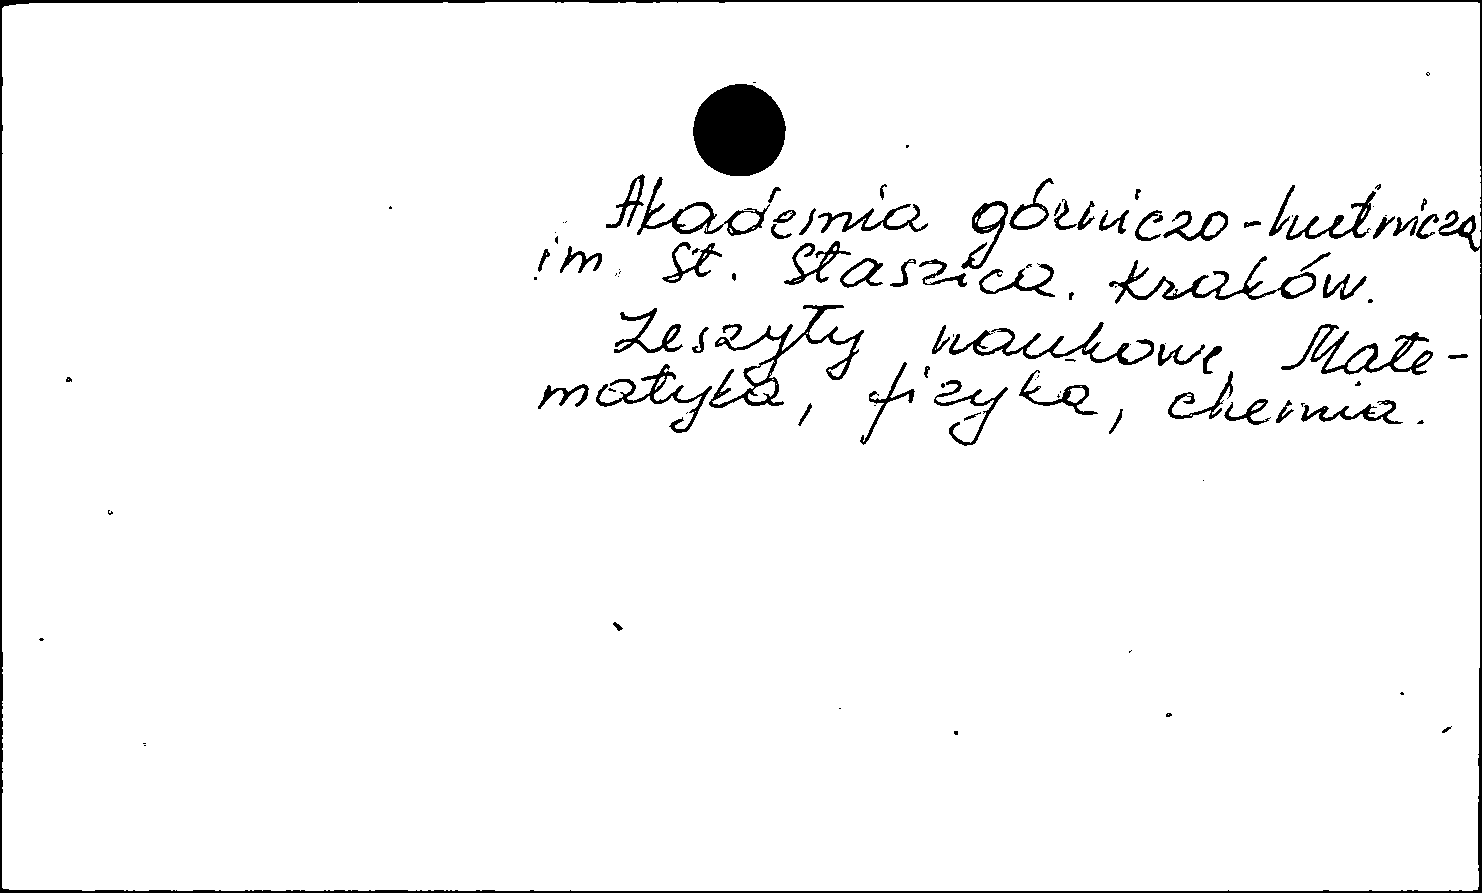 Akademia górniczo-hutnicza
im. St. Staszica. Kraków.
Zeszyty naukowe. Mate-
matyka, fizyka, chemia.